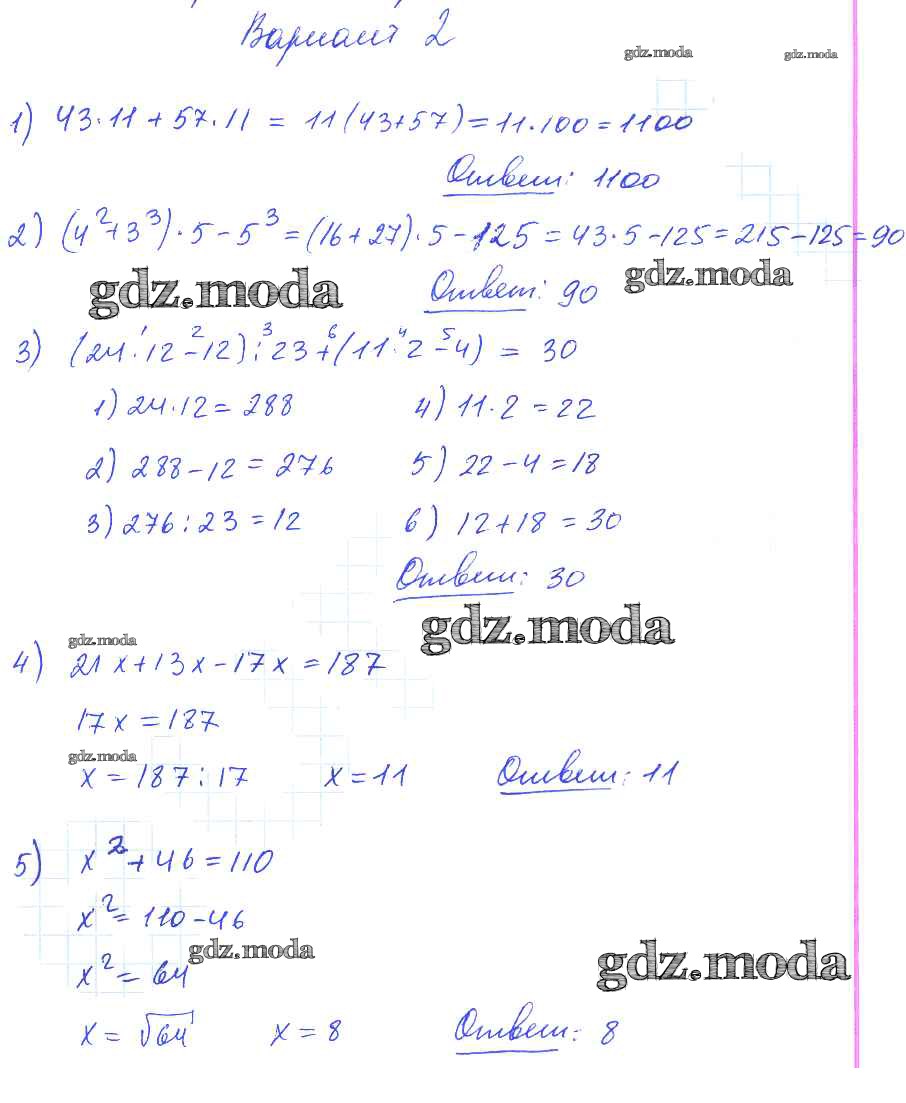 Вариант 2
gdz.moda gdz.moda
1) 43·11+57·11 = 11(43+57)=11·100=1100
Ответ: 1100
2) (4²+3³)·5-5³=(16+27)·5-125=43·5-125=215-125=90
gdz.moda Ответ: 90 gdz.moda
1 2 3 6 4 5
3) (24·12-12):23+(11·2-4) = 30
1) 24·12=288 4) 11·2=22
2) 288-12=276 5) 22-4=18
3) 276:23=12 6) 12+18=30
Ответ: 30
gdz.moda gdz.moda
4) 21x+13x-17x=187
17x=187
gdz.moda
x=187:17 x=11 Ответ: 11
5) x²+46=110
x²=110-46
gdz.moda gdz.moda
x²=64
x=√64 x=8 Ответ: 8